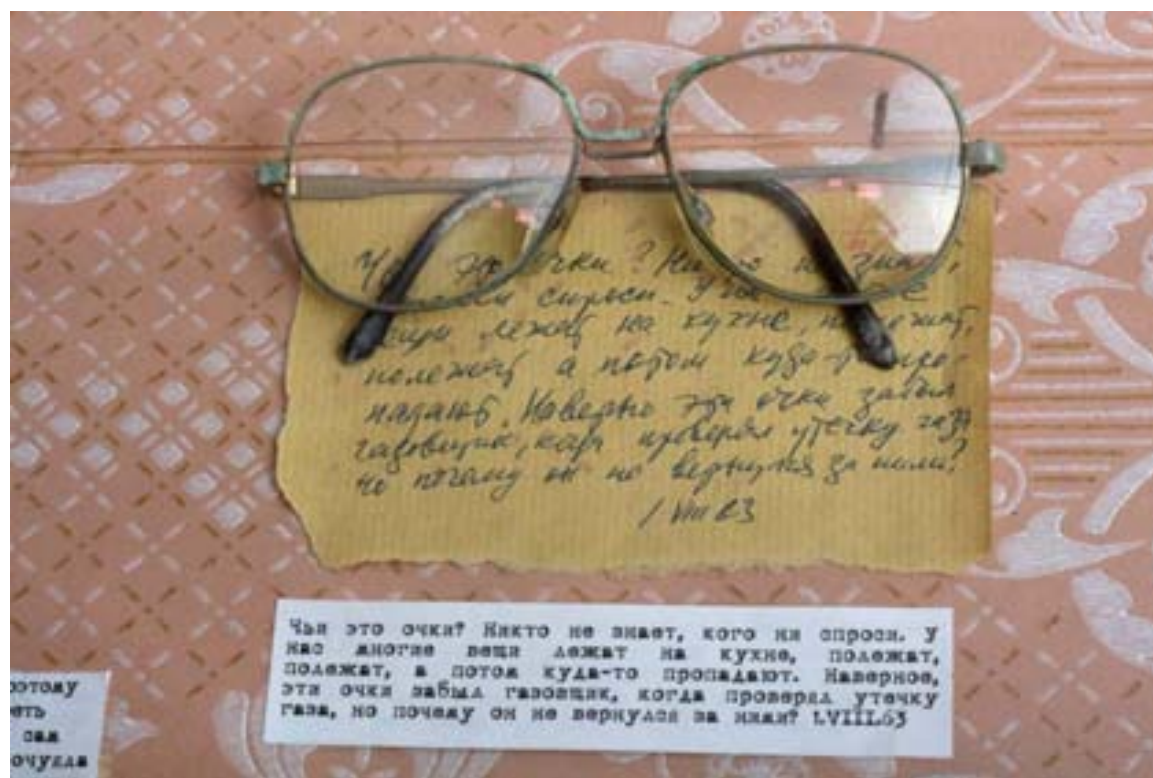 Чьи это очки? Ни не знает,
спроси. У нас
вещи лежат на кухне, полежат,
полежат а потом куда-то про-
падают. Наверно эти очки забыл
газовщик, когда проверял утечку газа
но почему он не вернулся за ними?
1 VIII 63
Чьи это очки? Никто не знает, кого ни спроси. У
нас многие вещи лежат на кухне, полежат,
полежат, а потом куда-то пропадают. Наверное,
эти очки забыл газовщик, когда проверял утечку
газа, но почему он не вернулся за ними? 1.VIII.63
оэтому
еть
сам
очукла